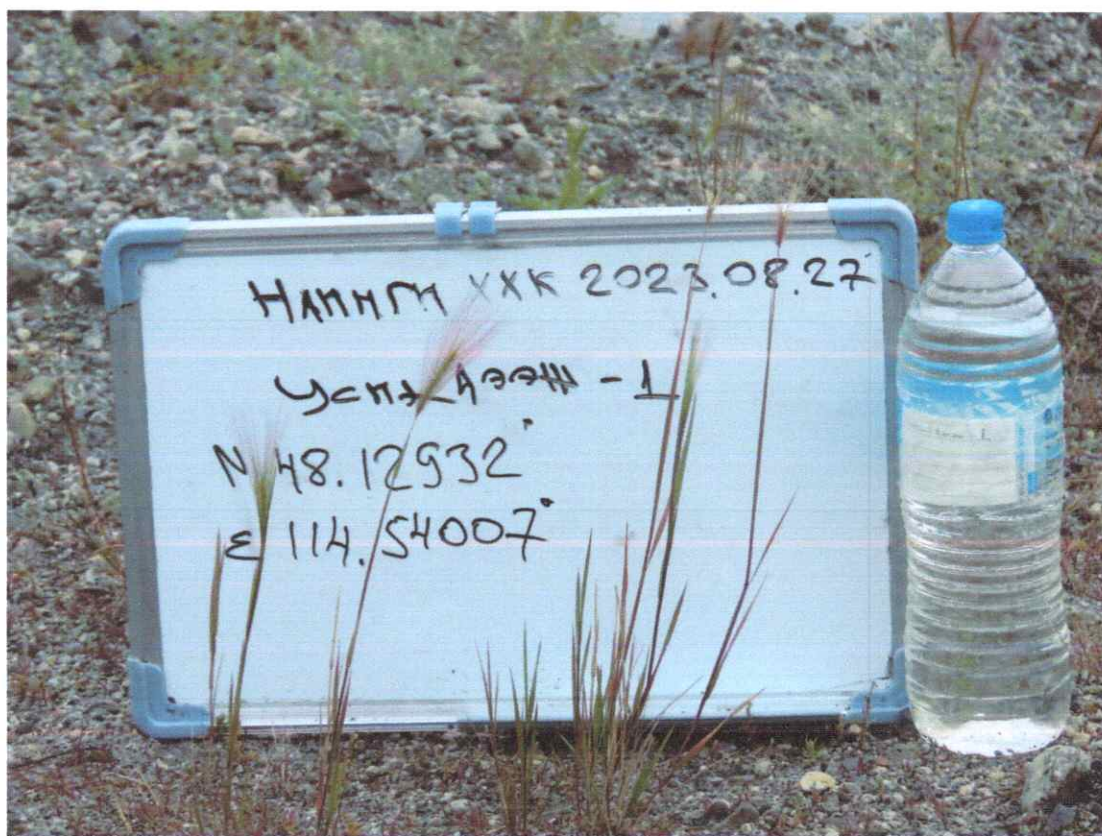 Наминги ХХК 2023.08.27
Усны дээж - 1
N 48.12932°
E 114.54007°